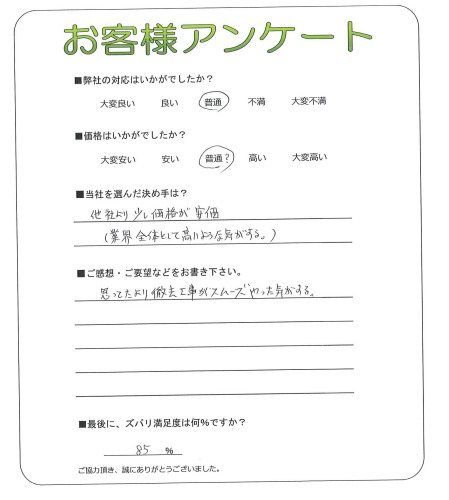 お客様アンケート
■弊社の対応はいかがでしたか？
大変良い 良い 普通 不満 大変不満
■価格はいかがでしたか？
大変安い 安い 普通？ 高い 大変高い
■当社を選んだ決め手は？
他社より少し価格が安価
(業界全体として高いような気がする。)
■ご感想・ご要望などをお書き下さい。
思ってたより撤去工事がスムーズやった気がする。
■最後に、ズバリ満足度は何％ですか？
85 ％
ご協力頂き、誠にありがとうございました。